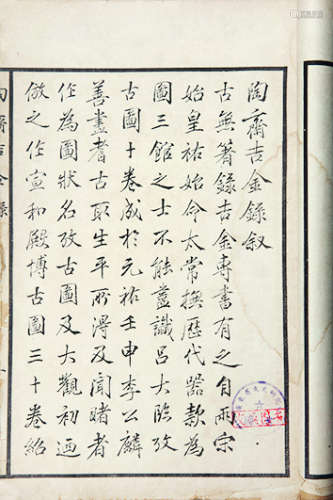 陶齋吉金錄敘
古無著錄吉金專書有之自兩宗
始皇祐始命太常撫歷代器款為
圖三館之士不能盡識呂大臨攷
古圖十卷成於元祐壬申李公麟
善畫耆古取生平所淂及聞睹者
作為圖狀名攷古圖及大觀初迺
倣之作宣和殿博古圖三十卷紹